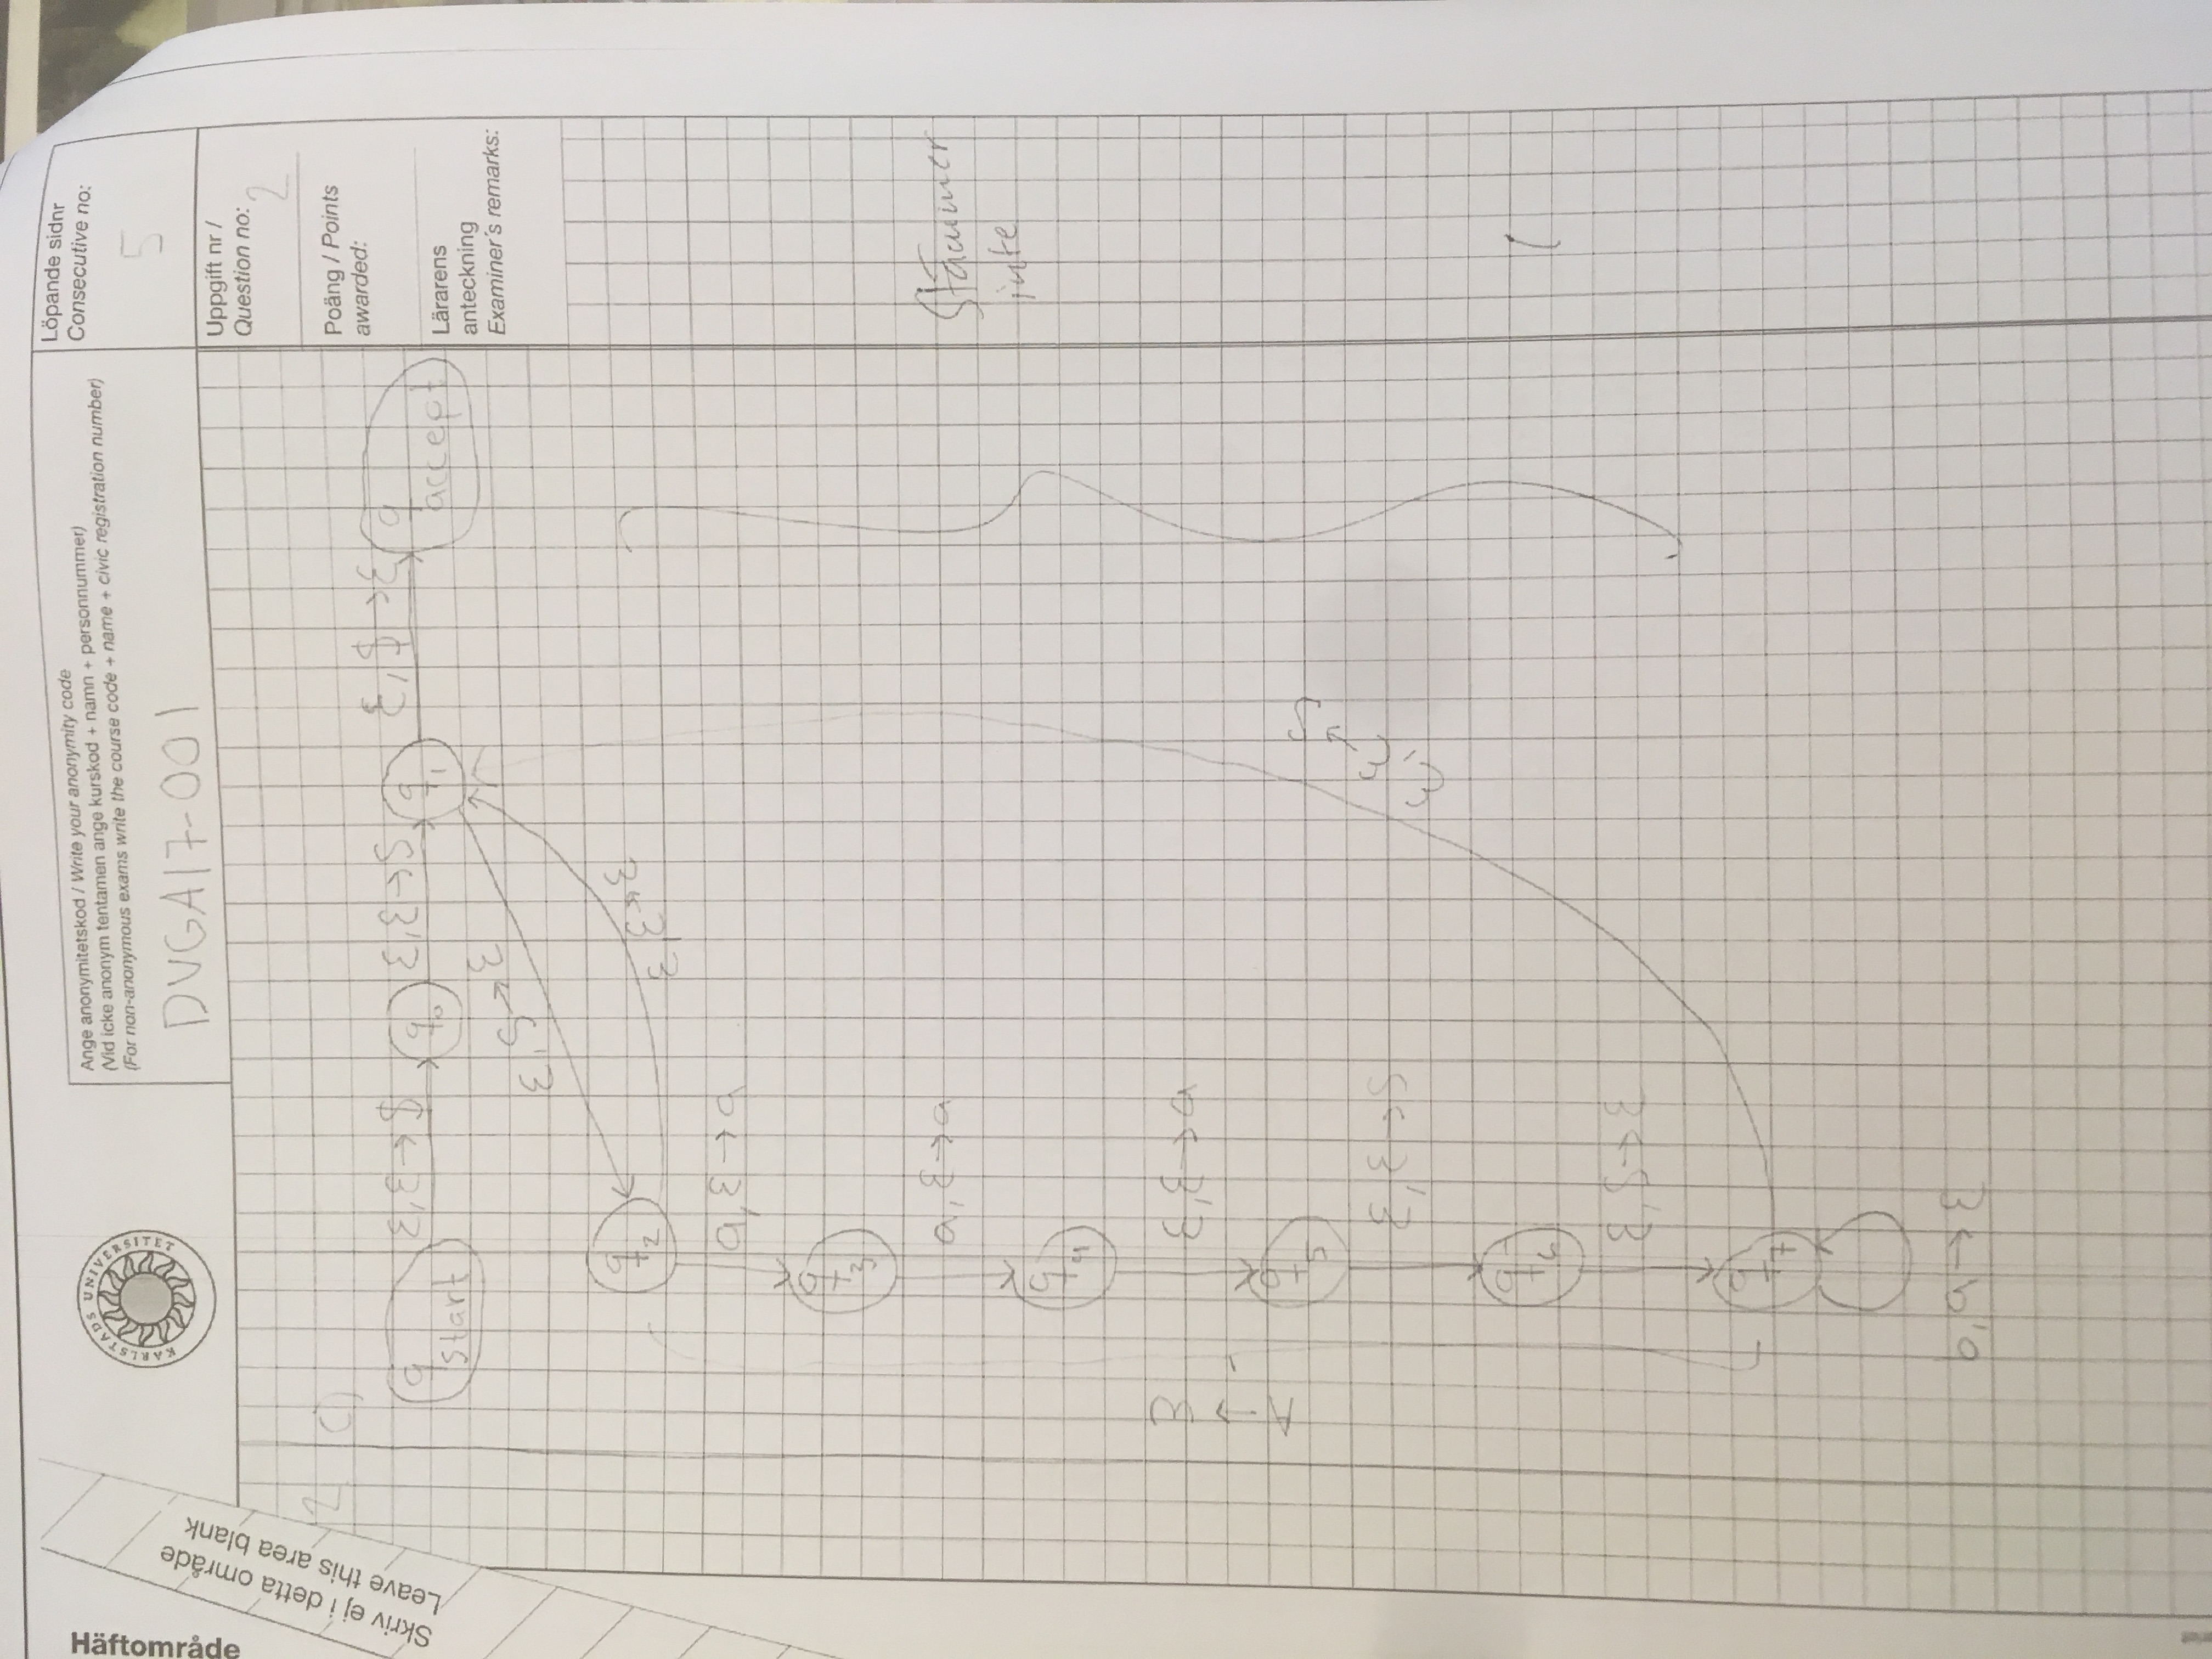 Häftområde
Skriv ej i detta område
Leave this area blank
KARLSTADS UNIVERSITET
Ange anonymitetskod / Write your anonymity code
(Vid icke anonym tentamen ange kurskod + namn + personnummer)
(For non-anonymous exams write the course code + name + civic registration number)
DVGA17-001
Löpande sidnr
Consecutive no:
5
Uppgift nr /
Question no:
2
Poäng / Points
awarded:
Lärarens
anteckning
Examiner's remarks:
2 c)
q start
ε,ε→$
q0
ε,ε→S
q1
ε,$→ε
q accept
ε,S→ε
q2
ε,ε→ε
a,ε→a
q3
a,ε→a
q4
ε,ε→a
q5
ε,ε→S
ε,S→ε
q7
ε,ε→S
b,a→ε
A→B
Stämmer
inte